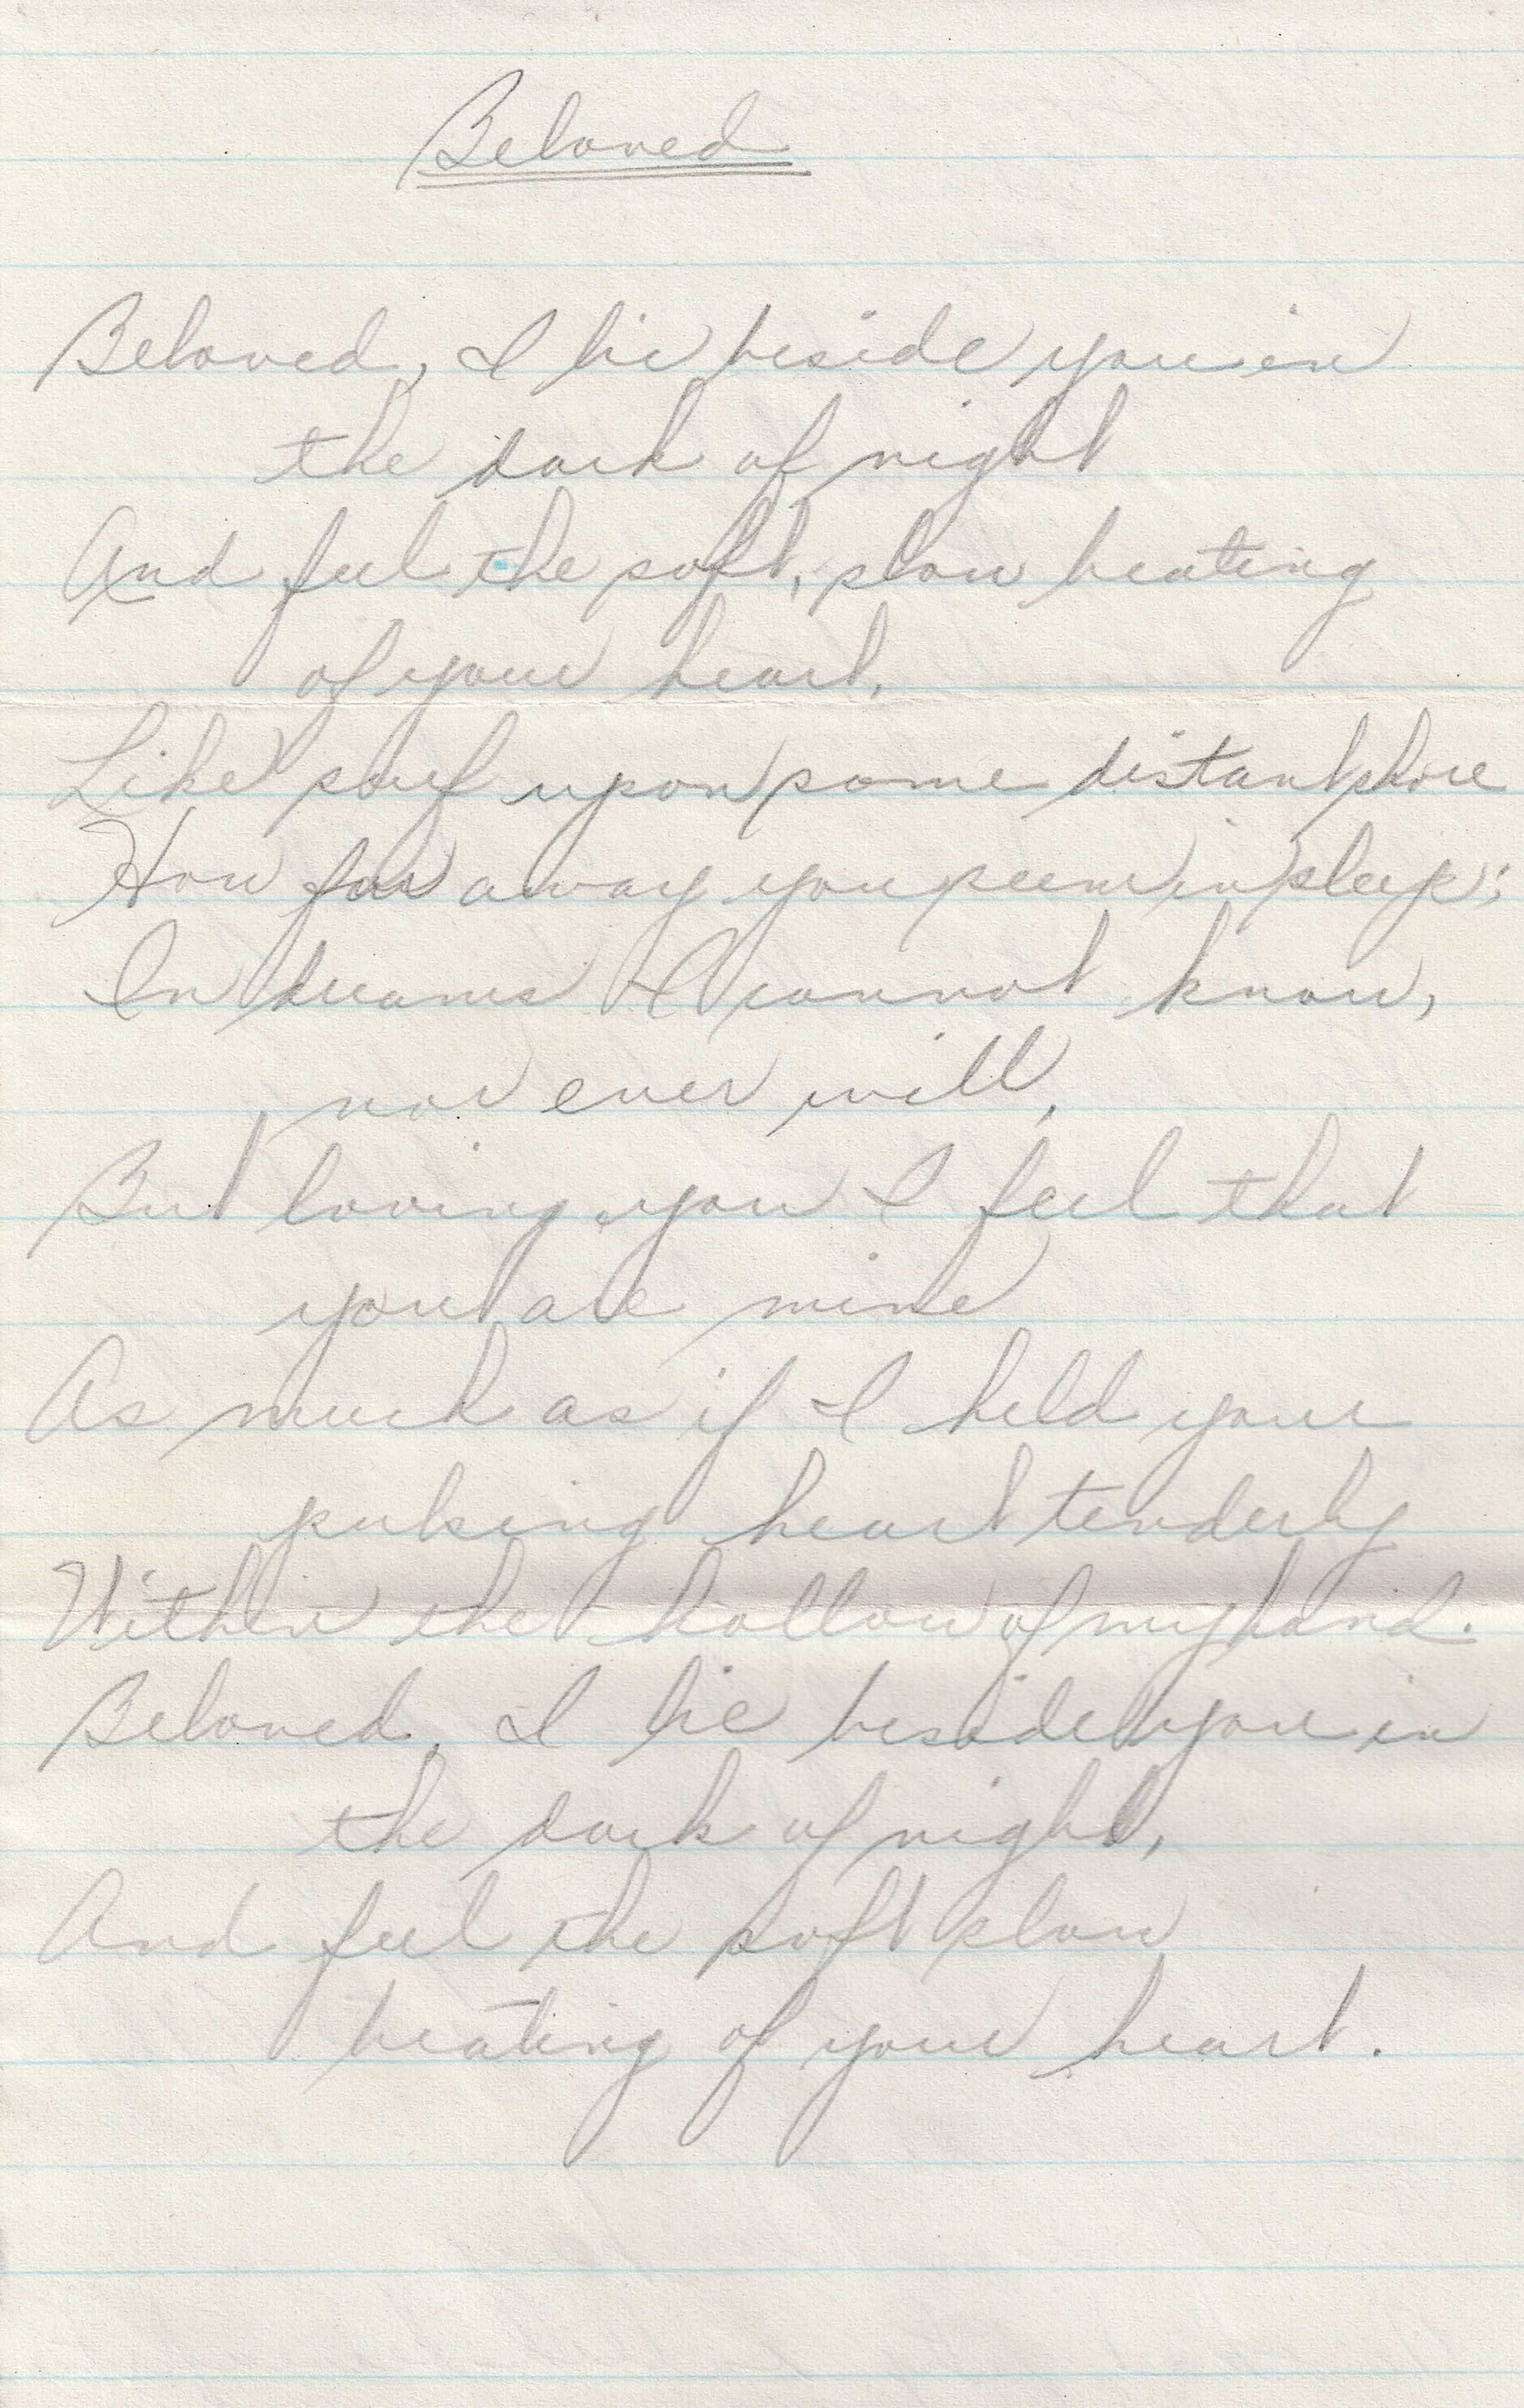 Beloved
Beloved, I lie beside you in
the dark of night
And feel the soft, slow beating
of your heart,
Like surf upon some distant shore
How far away you seem in sleep;
In dreams I cannot know,
nor ever will,
But loving you I feel that
you are mine
As much as if I held your
pulsing heart tenderly
Within the hollow of my hand.
Beloved, I lie beside you in
the dark of night,
And feel the soft slow
beating of your heart.